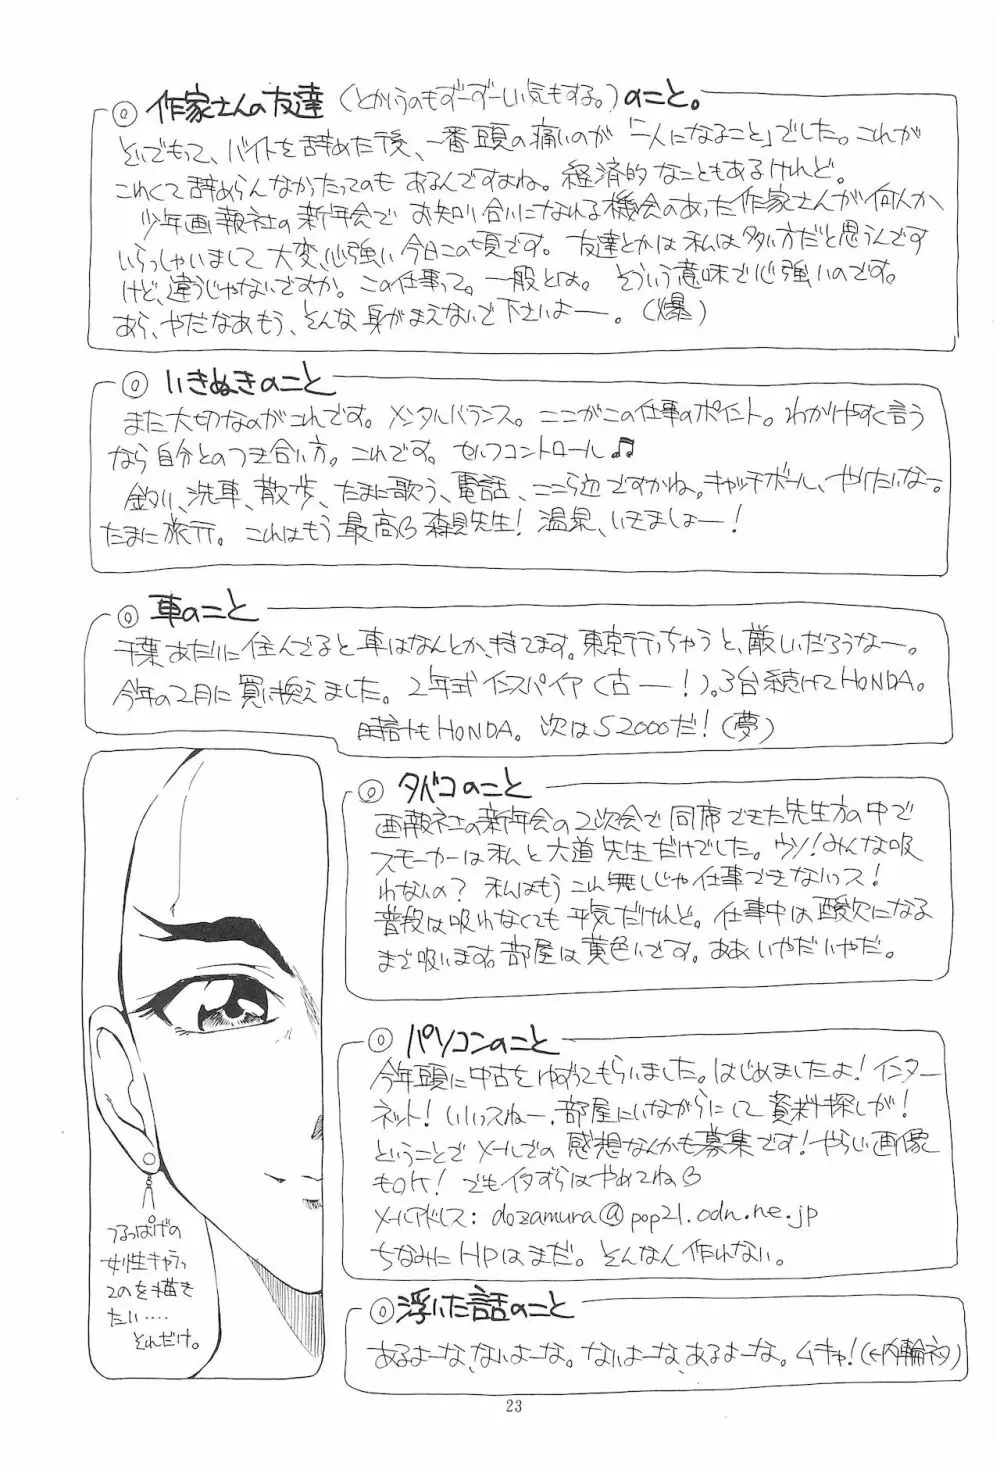 ◎作家さんの友達（とかいうのもずーずーしい気もする。）のこと。
そいでもって、バイトを辞めた後、一番頭の痛いのが「一人になること」でした。これが
こわくて辞めらんなかったってのもあるんですよね。経済的なこともあるけれど。
少年画報社の新年会でお知り合いになれる機会のあった作家さんが何人か
いらっしゃいまして大変、心強い今日この頃です。友達とかは私は多い方だと思うんです
けど、違うじゃないですか。この仕事って。一般とは。そういう意味で心強いのです。
あら、やだなあもう、そんな身がまえないで下さいよー。（爆）
◎いきぬきのこと
また大切なのがこれです。メンタルバランス。ここがこの仕事のポイント。わかりやすく言う
なら自分とのつき合い方。これです。セルフコントロール♫
釣り、洗車、散歩、たまに歌う、電話、ここら辺ですかね。キャッチボール、やりたいなー。
たまに旅行。これはもう最高 森見先生！温泉、いきましょー！
◎車のこと
千葉あたりに住んでると車はなんとか、持てます。東京行っちゃうと、厳しいだろうなー。
今年の2月に買い換えました。2年式インスパイア（古ー！）。3台続けてHONDA。
時計もHONDA。次はS2000だ！（夢）
◎タバコのこと
画報社の新年会の2次会で同席できた先生方の中で
スモーカーは私と大道先生だけでした。ウソ！みんな吸
わないの？私はもうこれ無しじゃ仕事できないッス！
普段は吸わなくても平気だけれど。仕事中は酸欠になる
まで吸います。部屋は黄色いです。ああいやだいやだ。
◎パソコンのこと
今年頭に中古をゆずってもらいました。はじめましたよ！インター
ネット！いいっスねー、部屋にいながらにして資料探しが！
ということでメールでの感想なんかも募集です！やらしい画像
もOK！でもイタずらはやめてね
メールアドレス：dozamura@pop21.odn.ne.jp
ちなみにHPはまだ。そんなん作れない。
つるっぱげの
女性キャラっ
てのを描き
たい……
それだけ。
◎浮いた話のこと
あるよーな、ないよーな。ないよーな、あるよーな。ムキャ！（←内輪ネタ）
23